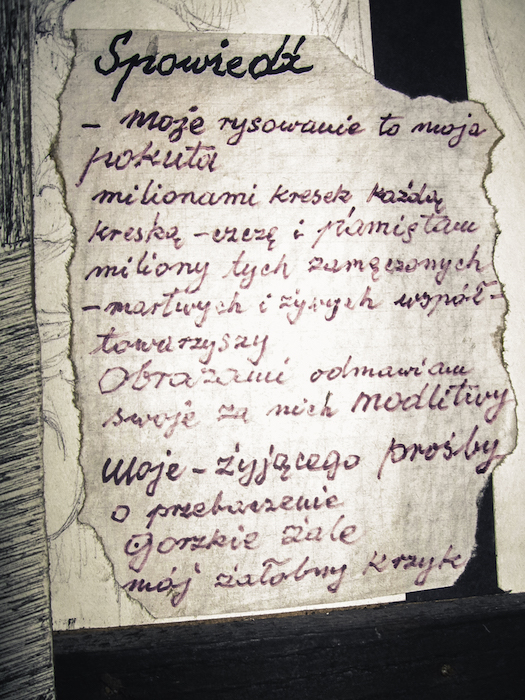 Spowiedź
- moje rysowanie to moja
pokuta
milionami kresek, każdą
kreską - czczę i pamiętam
miliony tych zamęczonych
- martwych i żywych współ-
towarzyszy
Obrazami odmawiam
swoje za nich modlitwy
Moje - żyjącego prośby
o przebaczenie
Gorzkie żale
mój żałobny krzyk